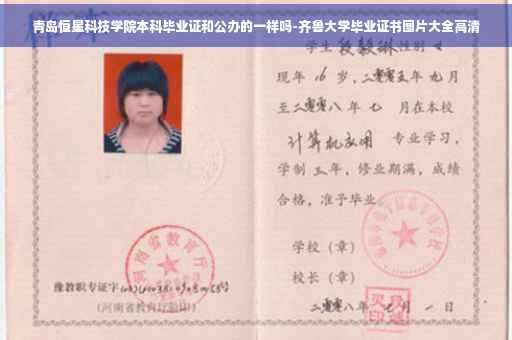 青岛恒星科技学院本科毕业证和公办的一样吗-齐鲁大学毕业证书图片大全高清
学生 段毅琳 性别 女
现年 16 岁，二零零五年 九月
至二零零八年 七 月在本校
计算机应用 专业学习，
学制 三年，修业期满，成绩
合格，准予毕业
学校（章）
校长（章）
豫教职专证字
（河南省教育厅验印）
二零零八年 月 一 日
河南省教育厅